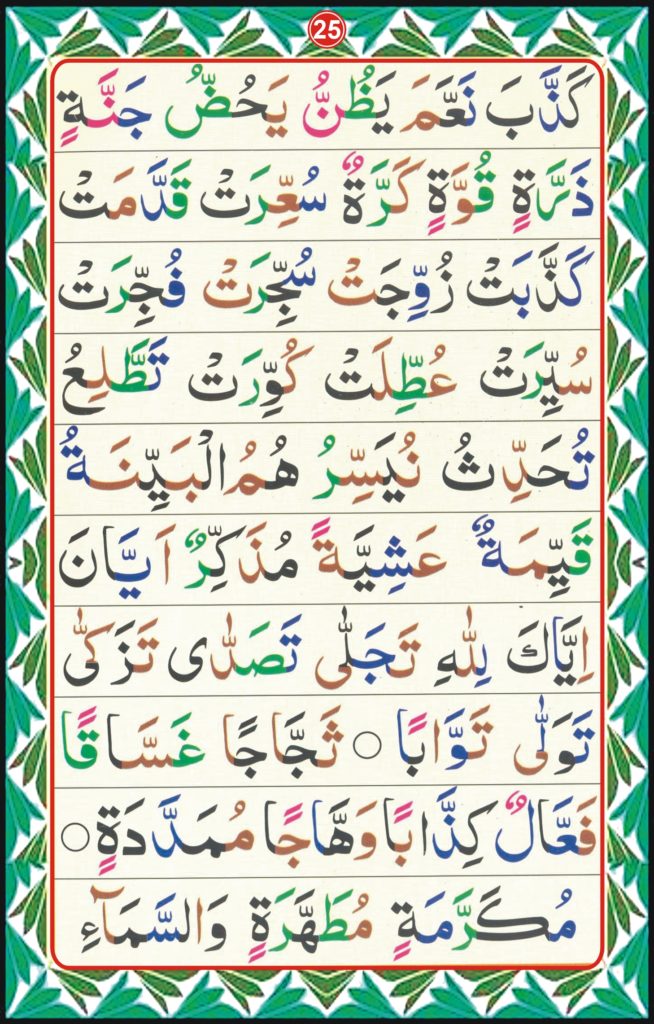 25
كَذَّبَ نَعَّمَ يَظُنُّ يَحُضُّ جَنَّةٍ
ذَرَّةٍ قُوَّةٍ كَرَّةٌ سُعِّرَتْ قَدَّمَتْ
كَذَّبَتْ زُوِّجَتْ سُجِّرَتْ فُجِّرَتْ
سُيِّرَتْ عُطِّلَتْ كُوِّرَتْ تَطَّلِعُ
تُحَدِّثُ نُيَسِّرُ هُمُ الْبَيِّنَةُ
قَيِّمَةٌ عَشِيَّةً مُذَكِّرٌ اَيَّانَ
اِيَّاكَ لِلّٰهِ تَجَلّٰى تَصَدّٰى تَزَكّٰى
تَوَلّٰى تَوَّابًا ○ ثَجَّاجًا غَسَّاقًا
فَعَّالٌ كِذَّابًا وَهَّاجًا مُمَدَّدَةٍ ○
مُكَرَّمَةٍ مُطَهَّرَةٍ وَالسَّمَآءِ